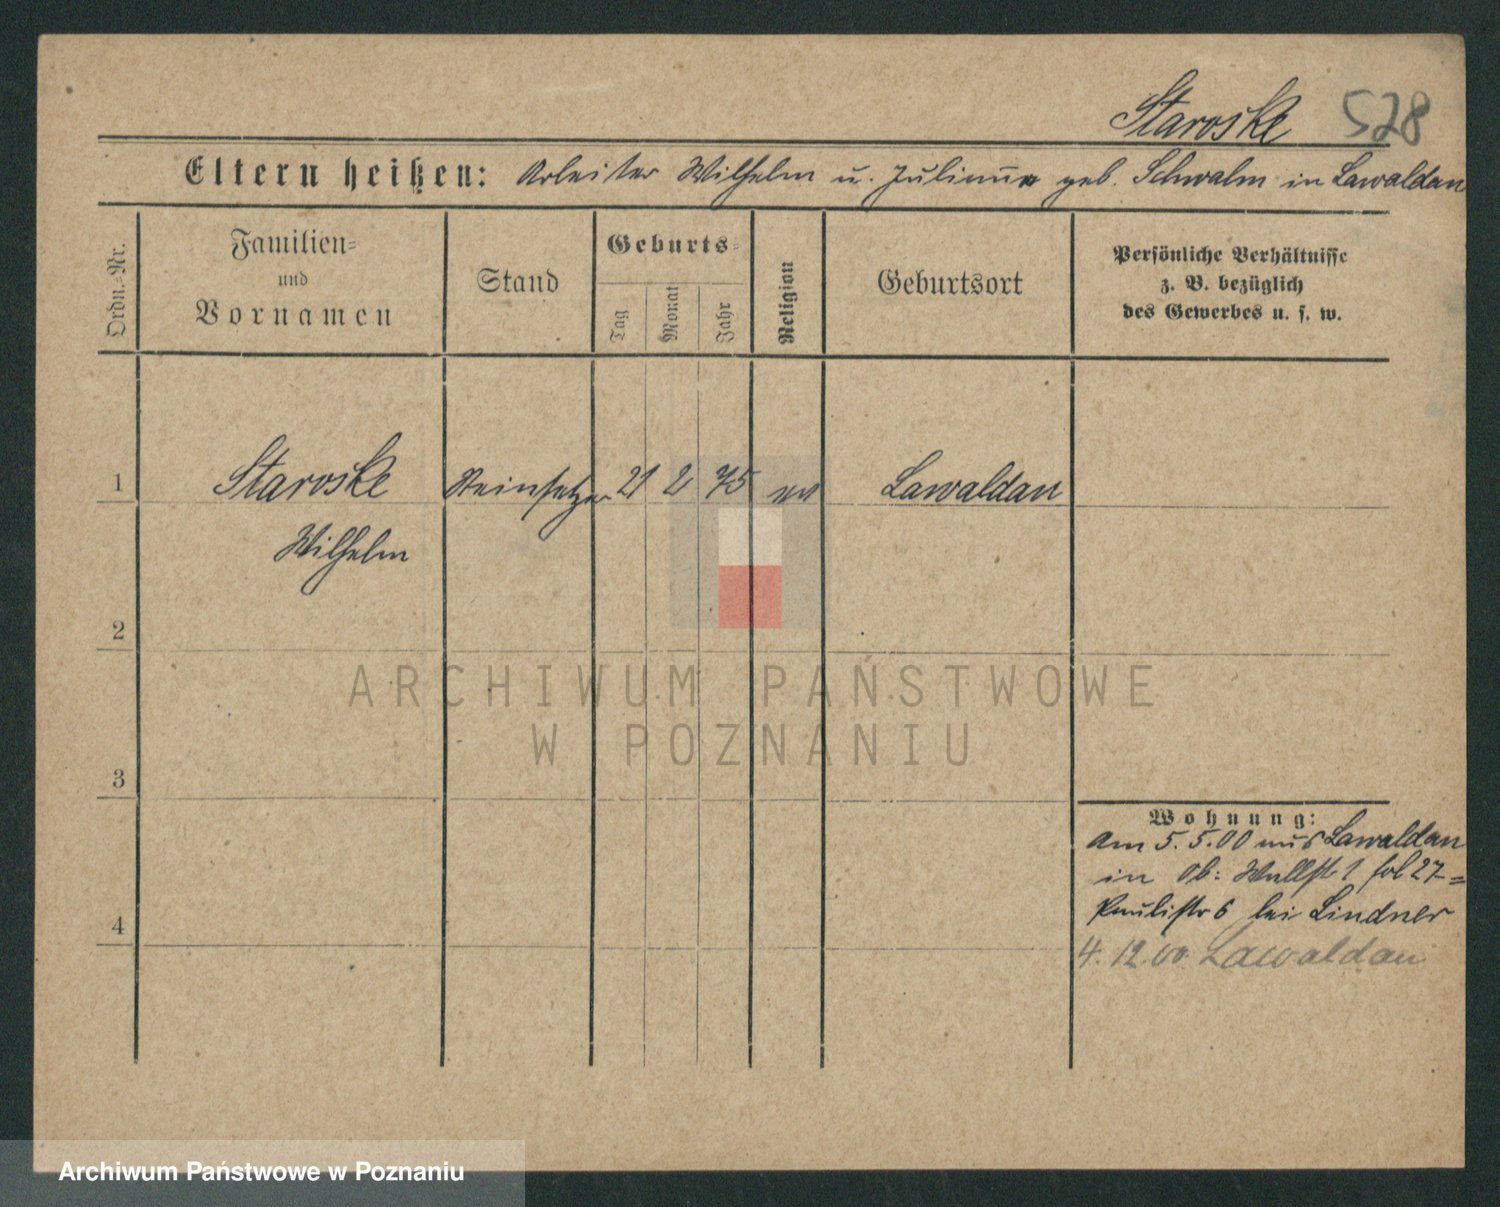 Staroske 528
Eltern heißen: Arbeiter Wilhelm u. Juliane geb. Schwalm in Lawaldau
Ordn.-Nr.
Familien- und Vornamen
Stand
Geburts-
Tag
Monat
Jahr
Religion
Geburtsort
Persönliche Verhältnisse
z. B. bezüglich
des Gewerbes u. s. w.
1 Staroske Steinsetzer 21 2 75 ev Lawaldau
Wilhelm
2
ARCHIWUM PAŃSTWOWE
W POZNANIU
3
Wohnung:
Am 5.5.00 aus Lawaldau
in Ob: Wallstr 1 fol 27=
Paulistr 6 bei Lindner
4
4.12.00 Lawaldau
Archiwum Państwowe w Poznaniu